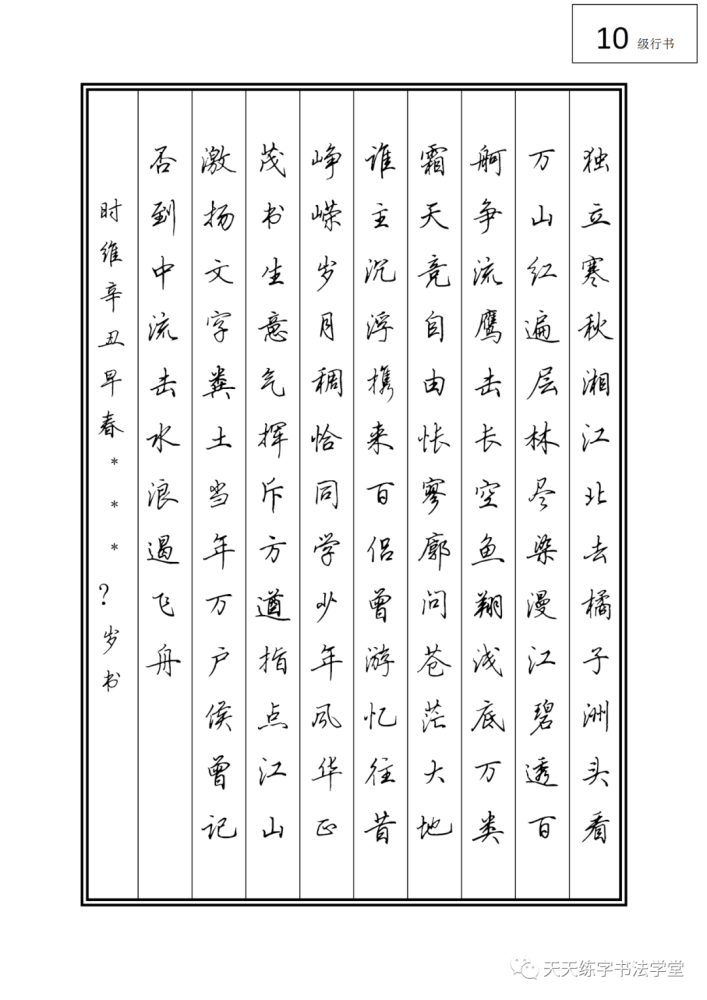 10 级行书
独立寒秋湘江北去橘子洲头看
万山红遍层林尽染漫江碧透百
舸争流鹰击长空鱼翔浅底万类
霜天竞自由怅寥廓问苍茫大地
谁主沉浮携来百侣曾游忆往昔
峥嵘岁月稠恰同学少年风华正
茂书生意气挥斥方遒指点江山
激扬文字粪土当年万户侯曾记
否到中流击水浪遏飞舟
时维辛丑早春***?岁书
天天练字书法学堂